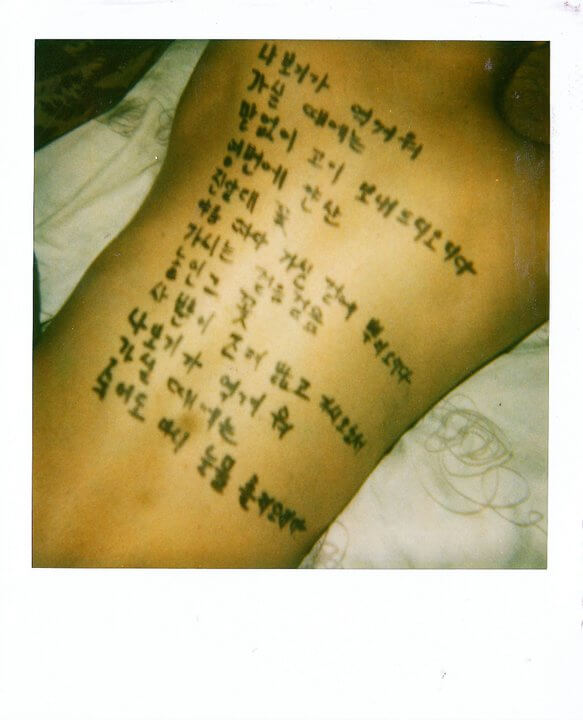 나 보기가 역겨워
가실 때에는
말없이 고이 보내드리오리다
영변에 약산
진달래 꽃
아름 따다 가실 길에 뿌리오리다
가시는 걸음 걸음
놓인 그 꽃
사뿐이 즈려 밟고 가시옵소서
나 보기가 역겨워
가실 때에는
죽어도 아니 눈물 흘리오리다